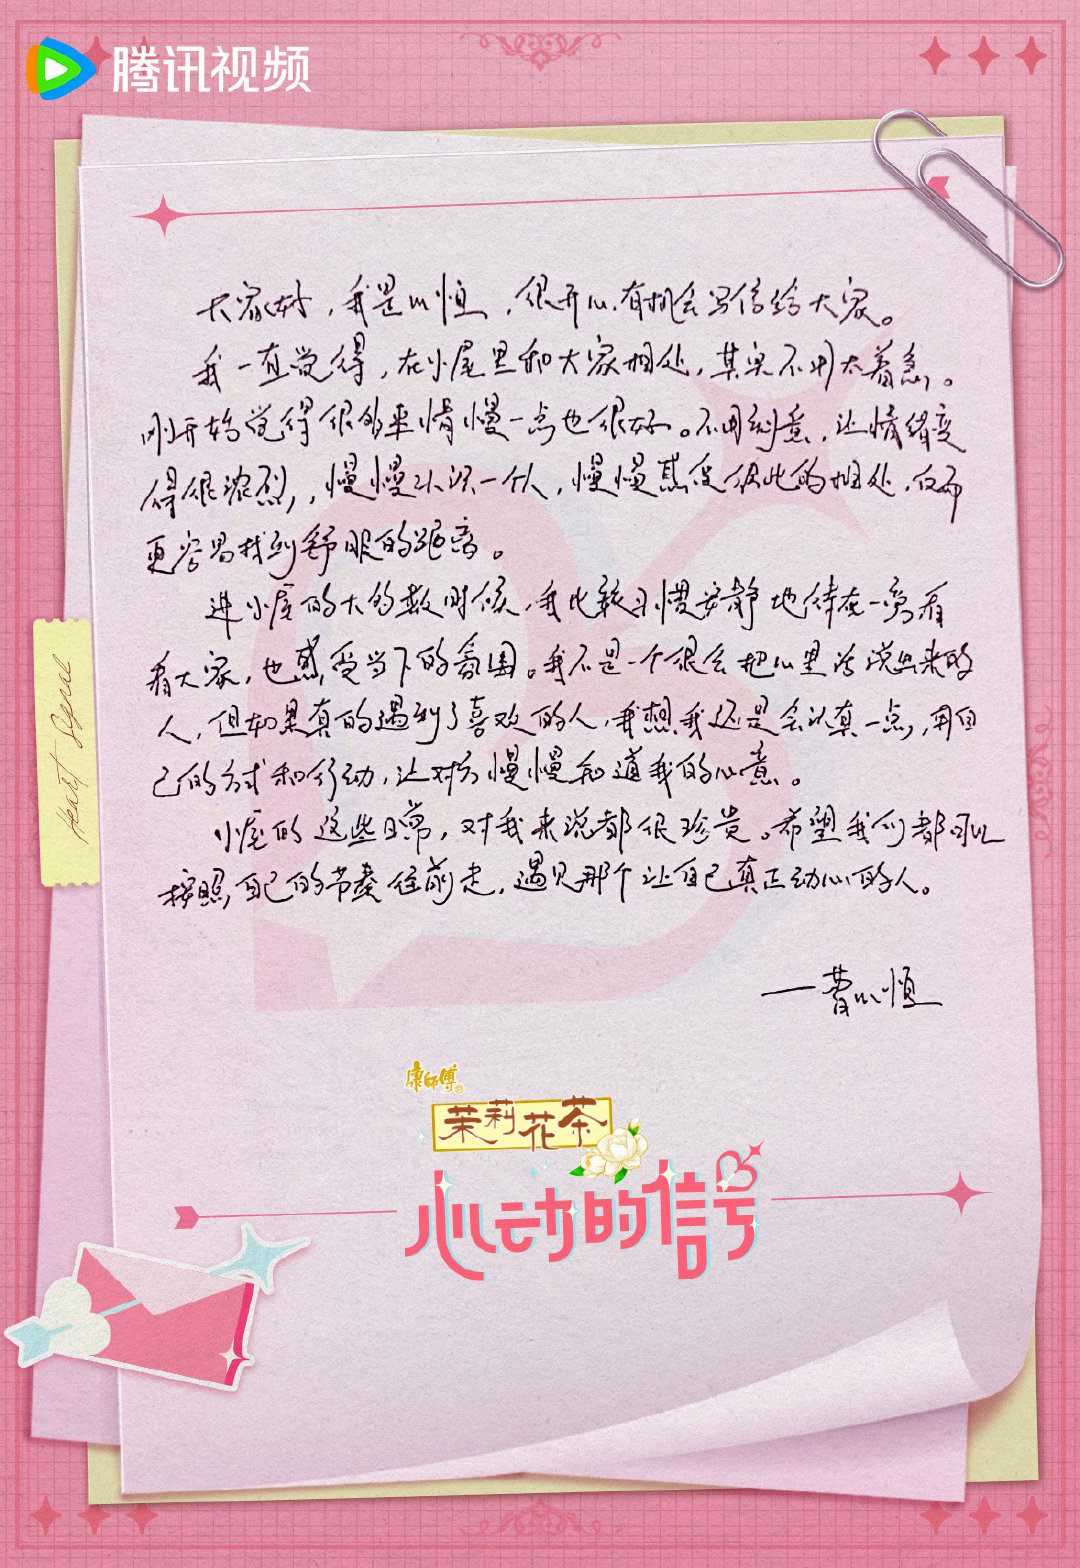 腾讯视频
大家好，我是以恒，很开心有机会写信给大家。
我一直觉得，在小屋里和大家相处，其实不用太着急。
刚开始觉得很多事情慢一点也很好。不用刻意，让情绪变
得很浓烈，慢慢认识一个人，慢慢感受彼此的相处，反而
更容易找到舒服的距离。
进小屋的大多数时候，我比较习惯安静地待在一旁看
看大家，也感受当下的氛围。我不是一个很会把心里话说出来的
人，但如果真的遇到了喜欢的人，我想我还是会认真一点，用自
己的方式和行动，让对方慢慢知道我的心意。
小屋的这些日常，对我来说都很珍贵。希望我们都可以
按照自己的节奏往前走，遇见那个让自己真正动心的人。
—曹以恒
Heart Signal
康师傅
茉莉花茶
心动的信号